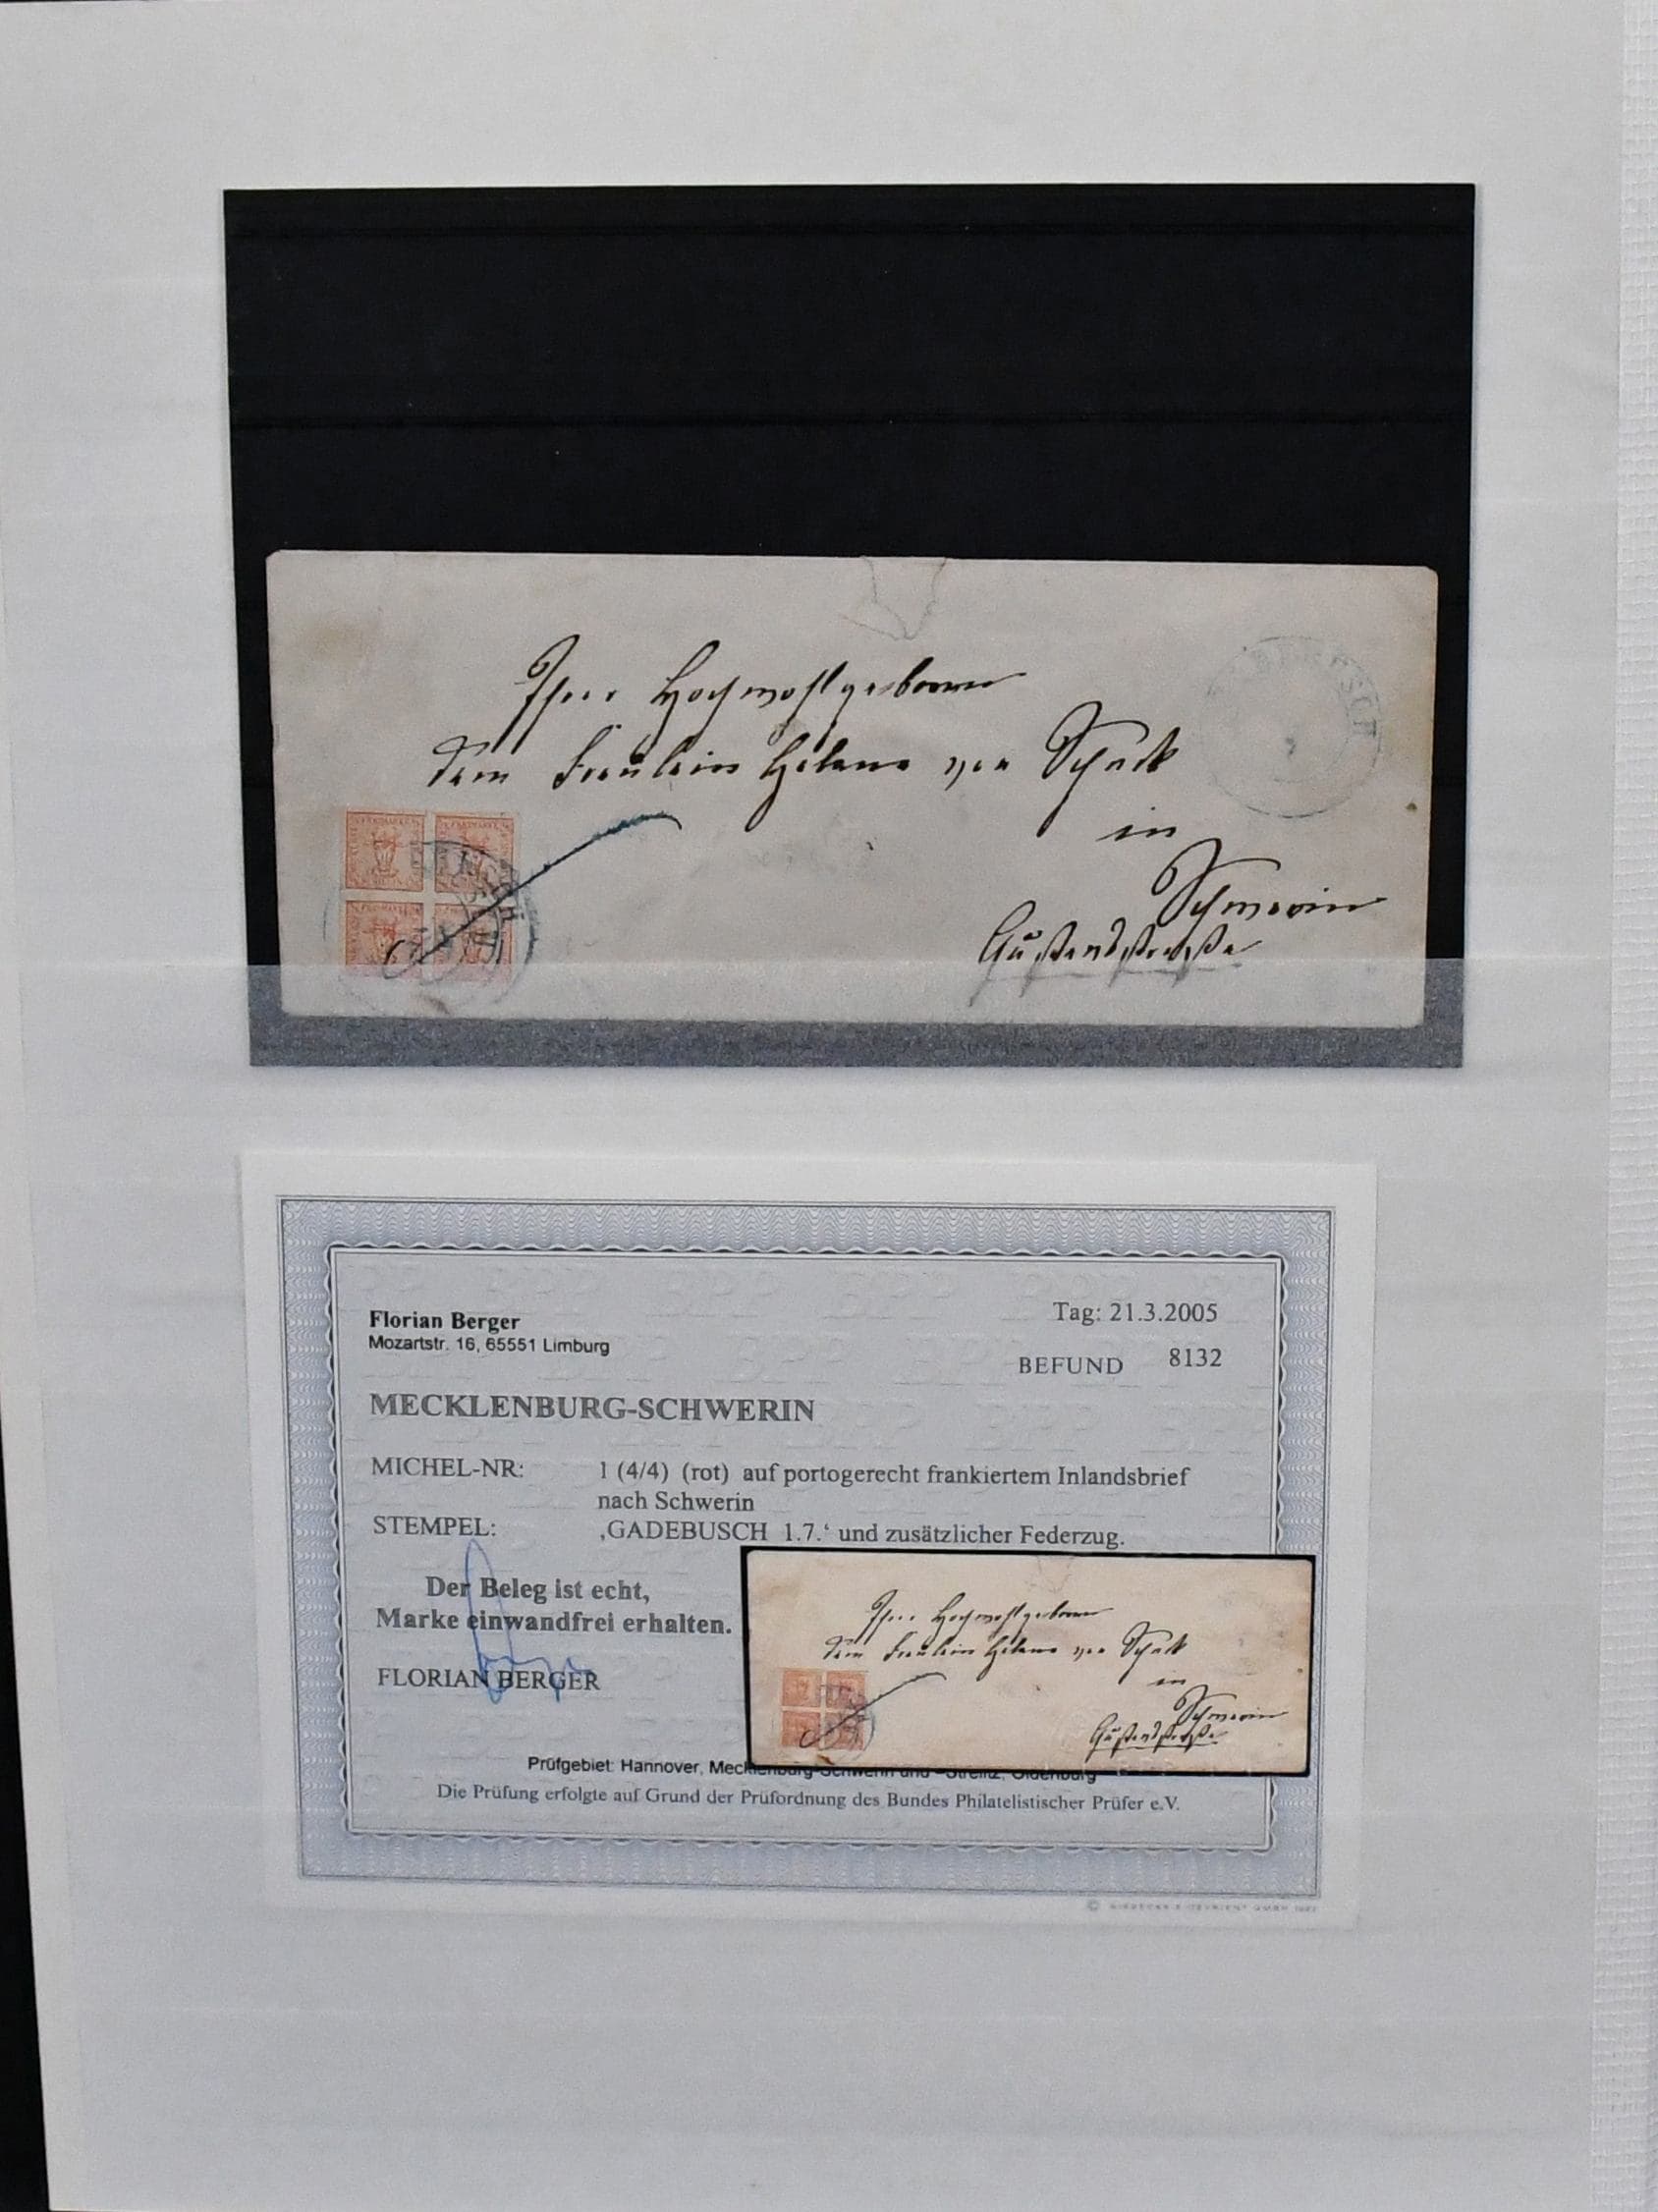 Ihrer Hochwohlgeboren
dem Fräulein Helene von Schack
in
Schwerin
Florian Berger
Mozartstr. 16, 65551 Limburg
Tag: 21.3.2005
BEFUND 8132
MECKLENBURG-SCHWERIN
MICHEL-NR: 1 (4/4) (rot) auf portogerecht frankiertem Inlandsbrief
nach Schwerin
STEMPEL: ‚GADEBUSCH 1.7.‘ und zusätzlicher Federzug.
Der Beleg ist echt,
Marke einwandfrei erhalten.
FLORIAN BERGER
Prüfgebiet: Hannover, Mecklenburg-Schwerin und -Strelitz, Oldenburg
Die Prüfung erfolgte auf Grund der Prüfordnung des Bundes Philatelistischer Prüfer e.V.